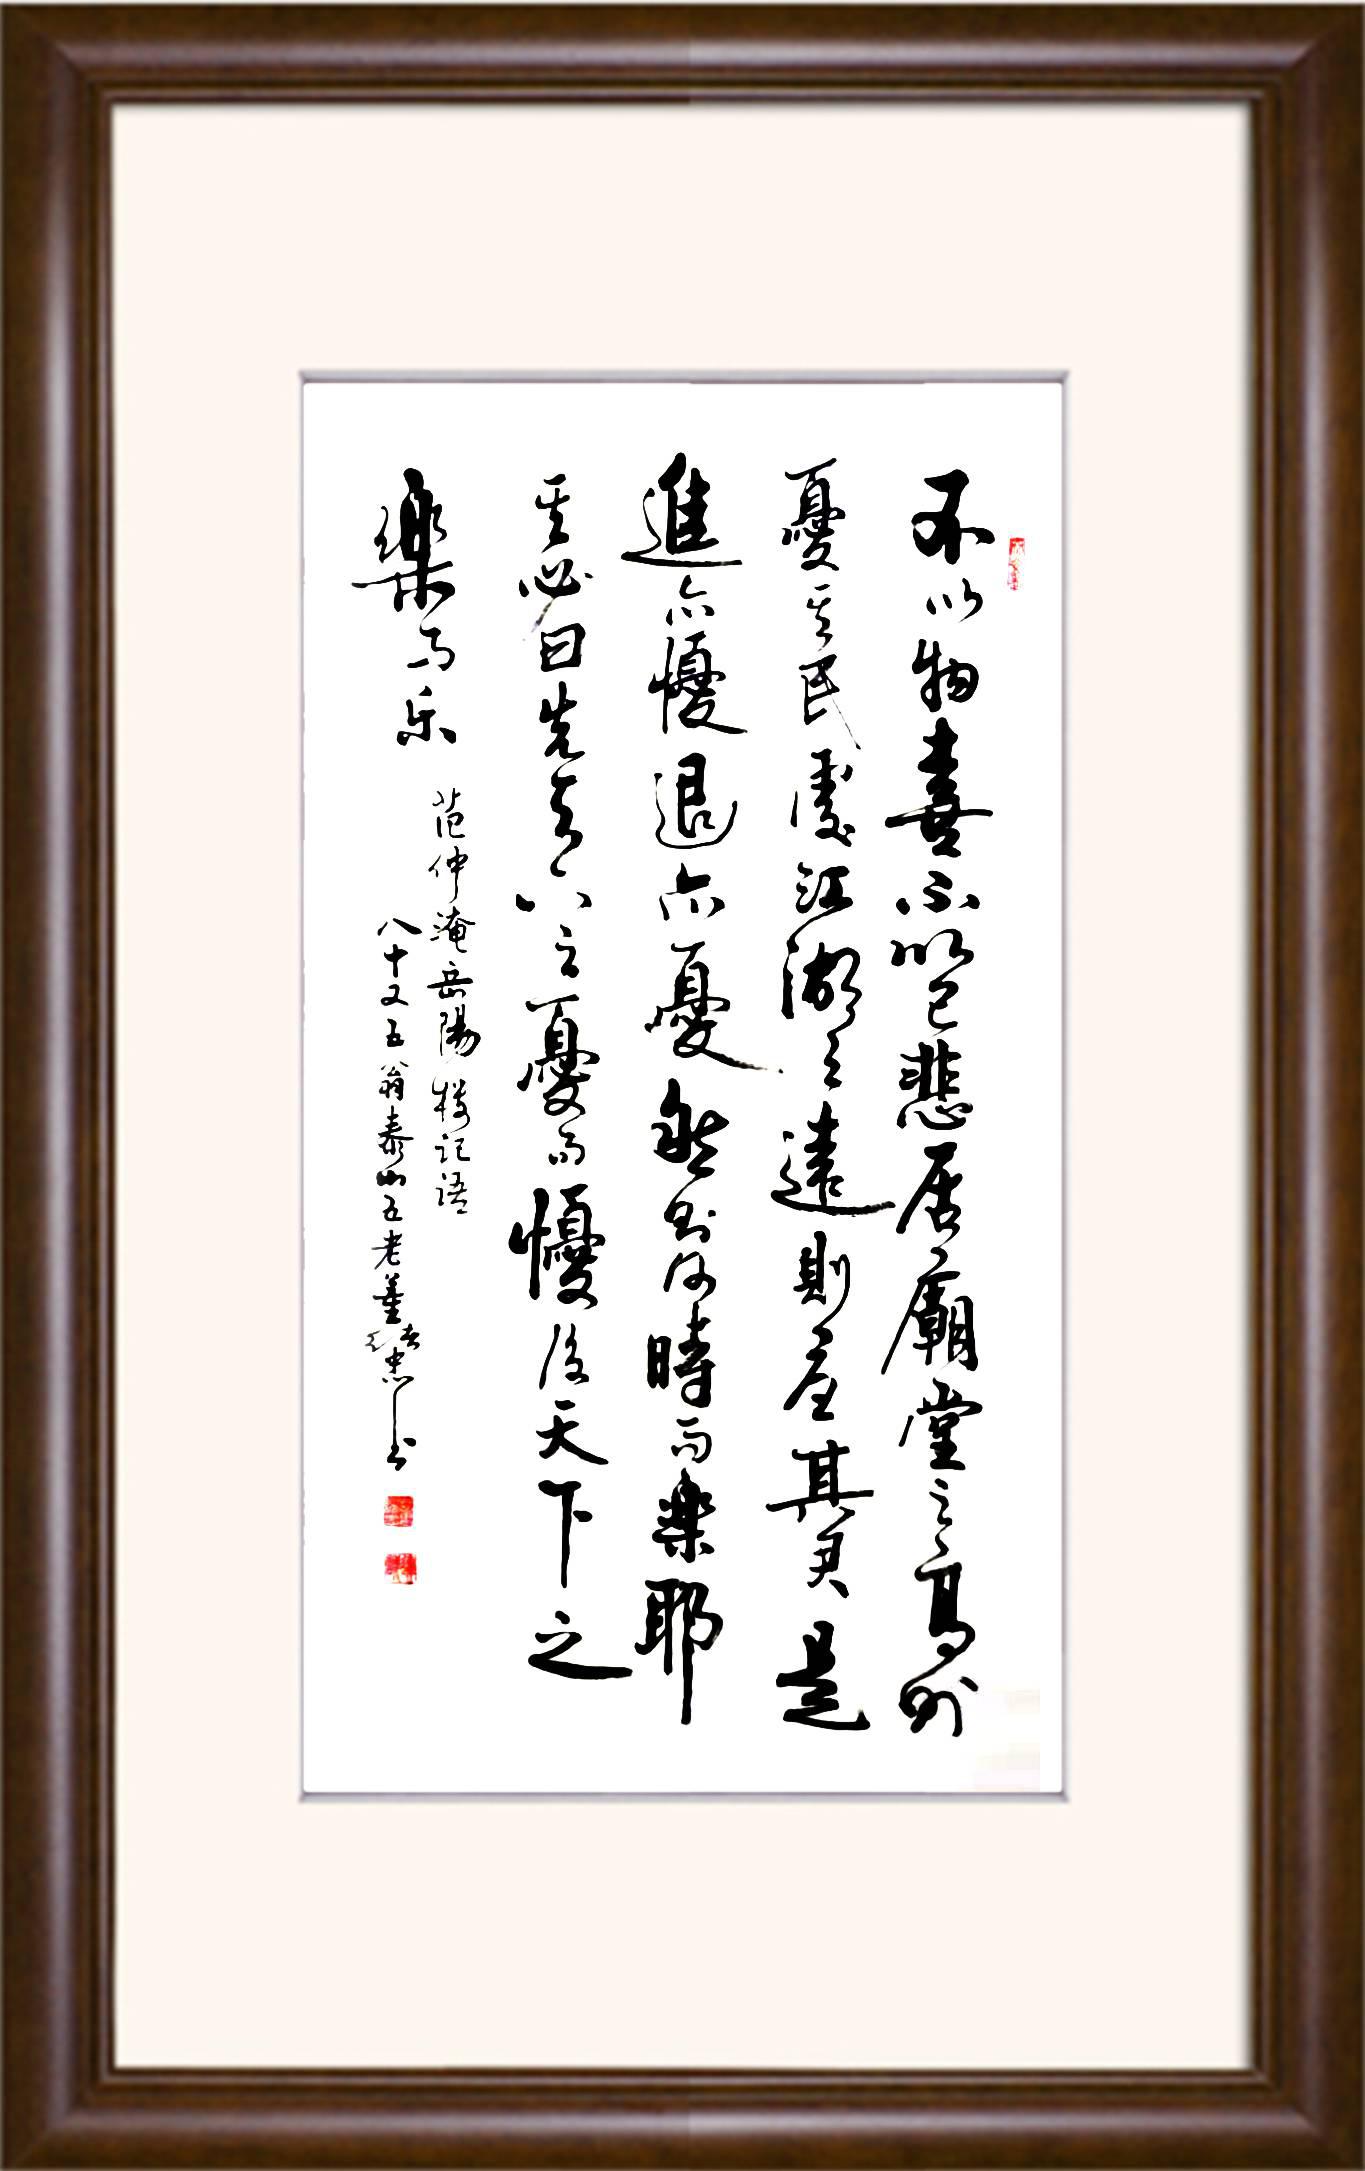 不以物喜不以己悲居廟堂之高則
憂其民處江湖之遠則憂其君是
進亦憂退亦憂然則何時而樂耶
其必曰先天下之憂而憂後天下之
樂而乐
范仲淹岳陽樓记語
八十又五翁泰山五老董繼忠书